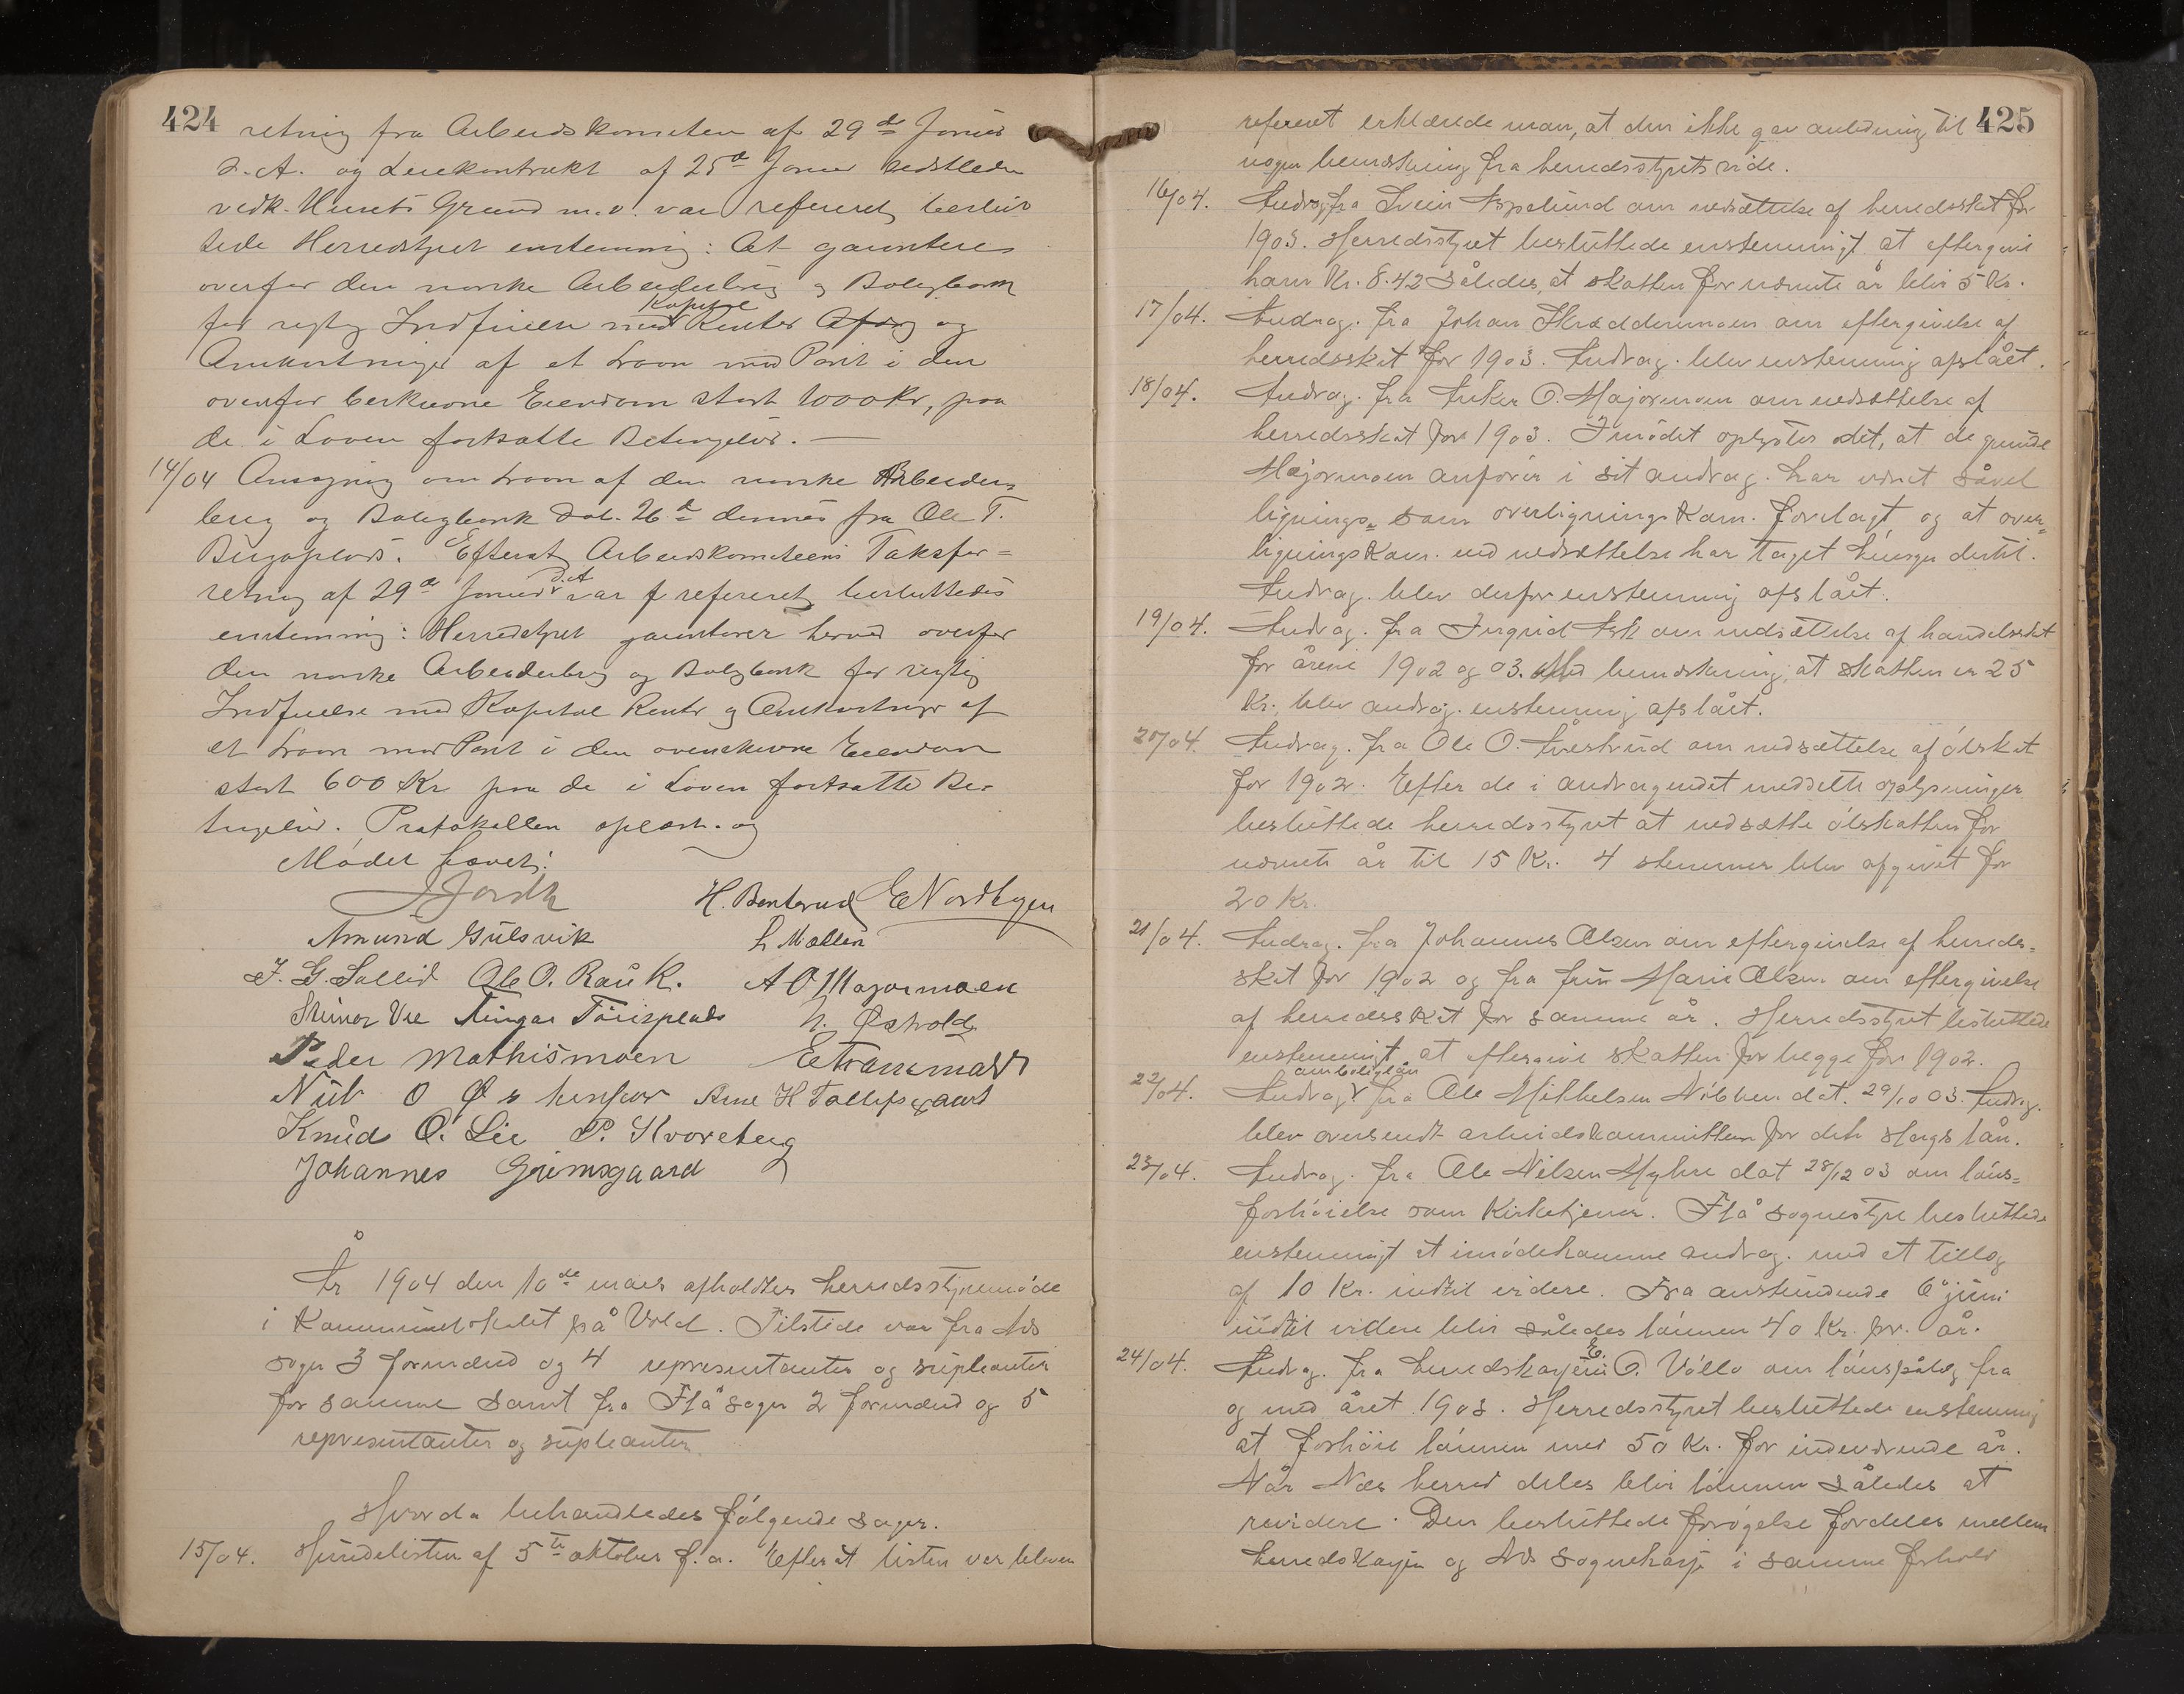 424
retning fra Arbeidskomiteen af 29de Januar
d. A. og Leiekontrakt af 25de Januar sidstleden
vedk. Husets Grund m. v. var refereret, beslut
tede Herredstyret enstemmig: At garantere
overfor den norske Arbeiderbrug og Boligbank
for rigtig Indfrielse med Kapital Renter Afdrag og
Omkostninger af et Laan med Pant i den
ovenfor beskrevne Eiendom stort 1000 Kr, paa
de i Loven fortsatte Betingelser. —
14/04 Ansøgning om Laan af den norske Arbeider
brug og Boligbank dat. 26de dennes fra Ole T.
Efterat Arbeidskomiteens Taksfor=
retning af 29de Januar d. A var refereret, besluttedes
enstemmig: Herredstyret garanterer herved overfor
den norske Arbeiderbrug og Boligbank for rigtig
Indfrielse med Kapital Renter og Omkostninger af
et Laan med Pant i den ovenskrevne Eiendom
stort 600 Kr paa de i Loven fortsatte Be-
tingelser. Protokollen oplæst og
Mødet hævet:
H. Bentsrud E Nordhagen
Amund Gulsvik L Mollen
T. G. Sallid Ole O. Rauk. A O Majormoen
Steinar Vee Aingar Tøiisplads h. Østvold
Peder Mathismoen E Trommald
Nub O Arne H Tollefsgaard
Knud O. Lie P. Kvoreberg
Johannes Grimsgaard
År 1904 den 10de mars afholdtes herredsstyremøde
i Kommunelokalet på Vold. Tilstede var fra Nes
sogn 3 formænd og 4 representanter og supleanter
for samme samt fra Flå sogn 2 formænd og 5
representanter og supleanter.
Hvorda behandledes følgende sager.
15/04. Hundelisten af 5te oktober f. a. Efterat listen var bleven
425
refereret erklærede man, at den ikke gav anledning til
nogen bemærkning fra herredsstyrets side.
16/04. Andrag. fra Svein Aspelund om nedsættelse af herredsskat for
1903. Herredsstyret besluttede enstemmigt at eftergive
ham Kr. 8.42 således, at skatten for nævnte år blir 5 Kr.
17/04. Andrag. fra Johan Skrædermoen om eftergivelse af
herredsskat for 1903. Andrag. blev enstemmig afslået.
18/04. Andrag. fra Anker O. Majormoen om nedsættelse af
herredsskat for 1903. I mødet oplystes det, at de grunde
Majormoen anfører i sit andrag. har været såvel
lignings- som overligningskom. forelagt, og at over=
ligningskom. ved nedsættelse har taget hensyn dertil.
Andrag. blev derfor enstemmig afslået.
19/04. Andrag. fra Ingrid Ask om nedsættelse af handelsskat
for årene 1902 og 03. Med bemærkning, at skatten er 25
Kr. blev andrag. enstemmig afslået.
20/04. Andrag. fra Ole O. Averstrud om nedsættelse af ølskat
for 1902. Efter de i andragendet meddelte oplysninger
besluttede herredsstyret at nedsætte ølskatten for
nævnte år til 15 Kr. 4 stemmer blev afgivet for
20 Kr.
21/04. Andrag. fra Johannes Olsen om eftergivelse af herreds=
skat for 1902 og fra frue Marie Olsen om eftergivelse
af herredsskat for samme år. Herredsstyret besluttede
enstemmigt at eftergive skatten for begge for 1902.
22/04. Andrag. om boliglån fra Ole Mikkelsen Nibben dat. 29/10 03. Andrag.
blev oversendt arbeidskommitteen for dette slags lån.
23/04. Andrag. fra Ole Nilsen Myhre dat 28/12 03 om løns=
forhøielse som Kirketjener. Flå sognestyre besluttede
enstemmigt at imødekomme andrag. med et tillæg
af 10 Kr. indtil videre. Fra anstundende 6te juni
indtil videre blir således lønnen 40 Kr. pr. år.
24/04. Andrag. fra herredskasserer E. O. Vøllo om lønspålæg fra
og med året 1903. Herredsstyret besluttede enstemmig
at forhøie lønnen med 50 Kr. for indeværende år.
Når Nes herred deles blir lønnen således at
revidere. Den besluttede forøgelse fordeles mellem
herredskassen og Nes sognekasse i samme forhold